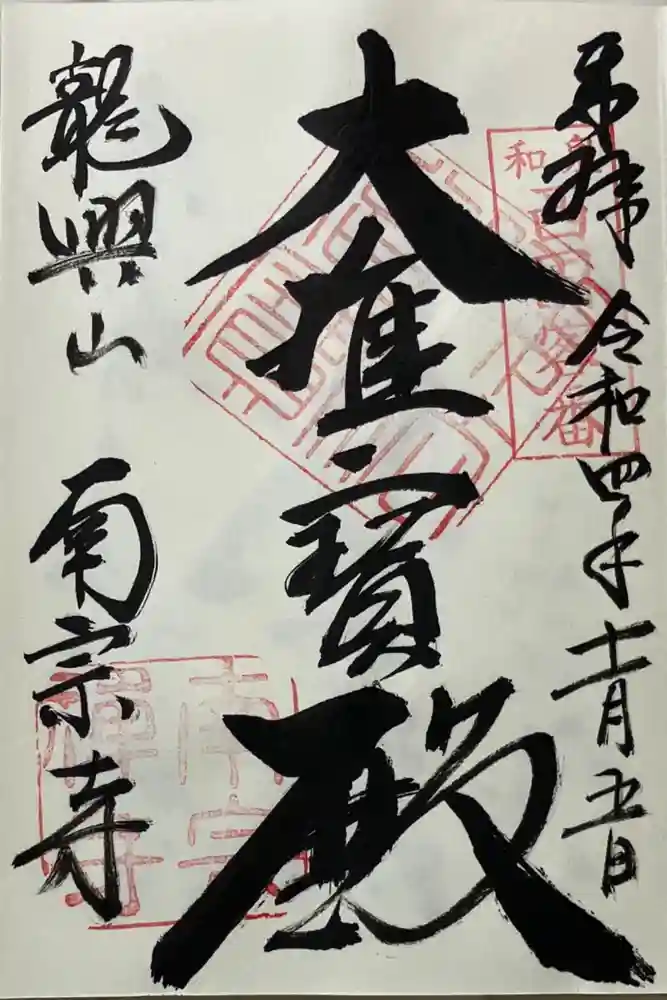 奉拝 令和四年十一月五日
大雄寶殿
龍興山 南宗寺
南宗
禪寺